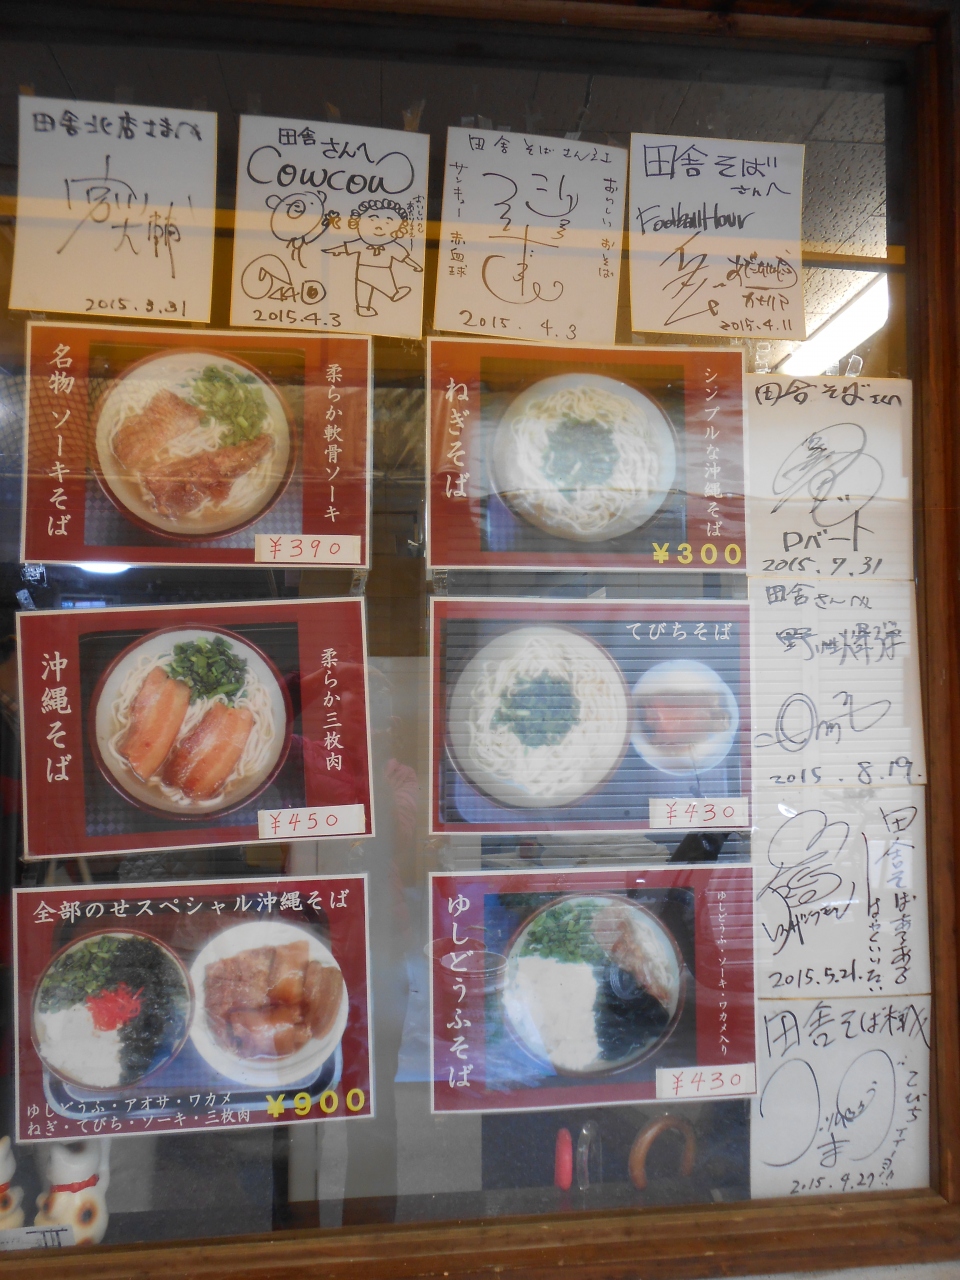 田舎北店さまへ
宮川大輔
2015.3.31
田舎さんへ
COWCOW
2015.4.3
田舎そばさん江
おいしいおそば
サンキュー 赤血球
2015.4.3
田舎そば
さんへ
FootballHour
2015.4.11
名物 ソーキそば
柔らか軟骨ソーキ
¥390
ねぎそば
シンプルな沖縄そば
¥300
田舎そばさんへ
Pバート
2015.7.31
沖縄そば
柔らか三枚肉
¥450
てびちそば
¥430
田舎さんへ
野性爆弾
2015.8.19.
全部のせスペシャル沖縄そば
ゆしどうふ・アオサ・ワカメ
ねぎ・てびち・ソーキ・三枚肉
¥900
ゆしどうふそば
ゆしどうふ・ソーキ・ワカメ入り
¥430
2015.5.21.
田舎そば
てびち
2015.9.27